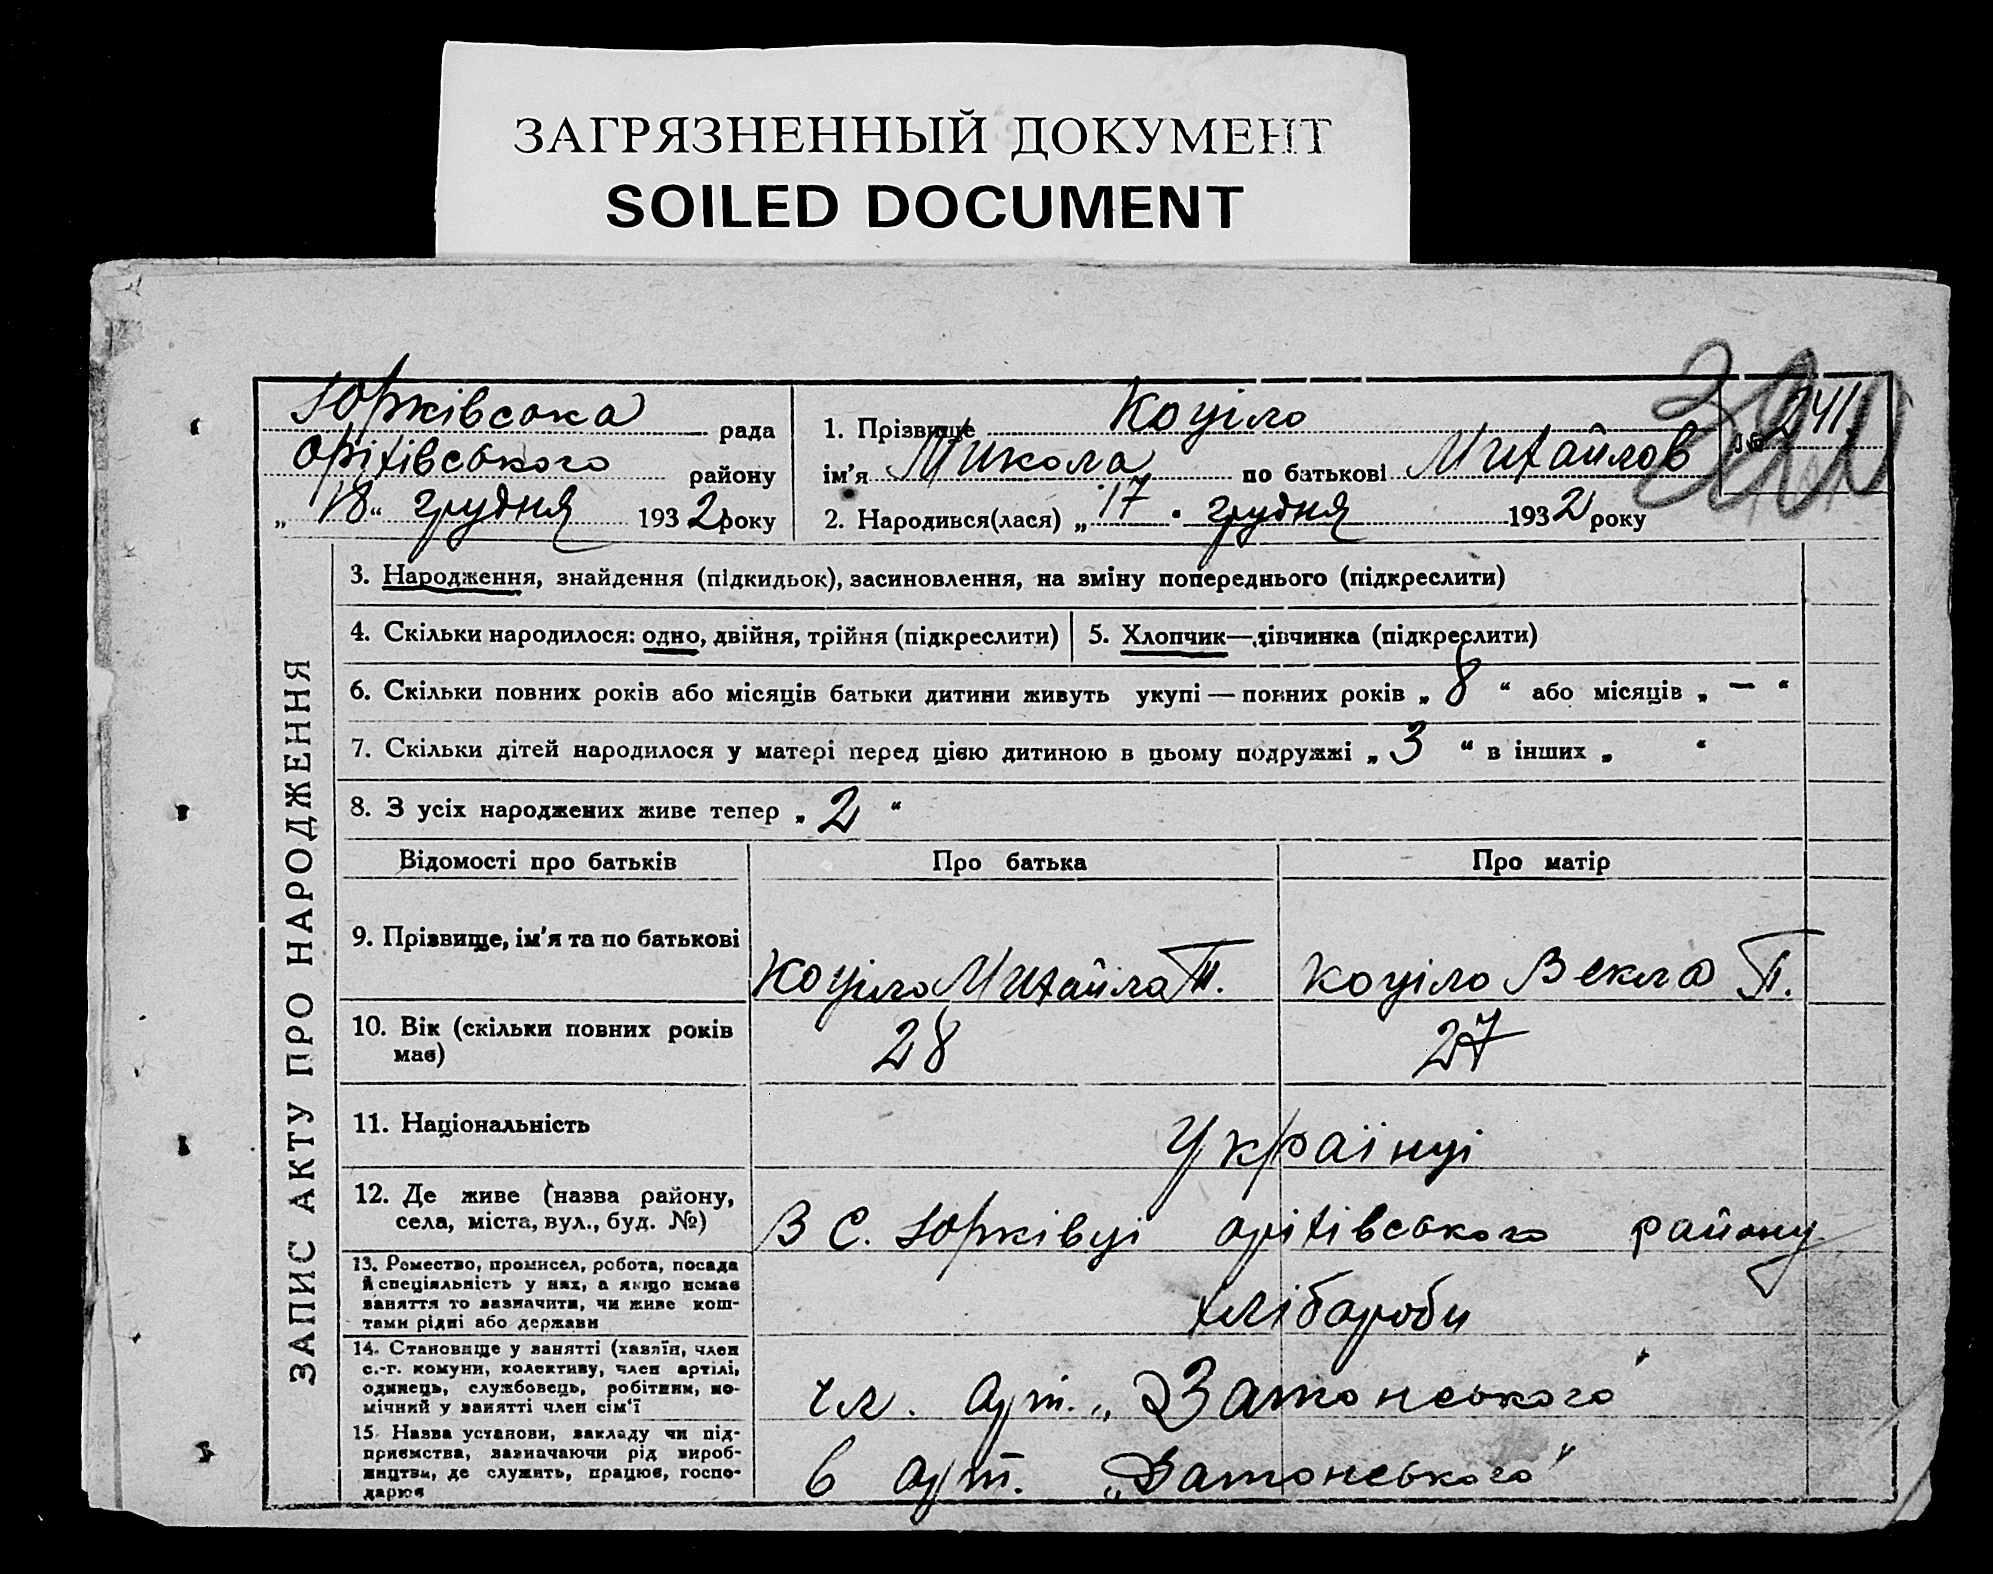 ЗАГРЯЗНЕННЫЙ ДОКУМЕНТ
SOILED DOCUMENT
Юрківська рада
Орітівського району
„ 18 “ грудня 1932 року
1. Прізвище Коціло
ім'я Микола по батькові Михайлов
№ 241
2. Народився(лася) „ 17 “ грудня 1932 року
ЗАПИС АКТУ ПРО НАРОДЖЕННЯ
3. Народження, знайдення (підкидьок), засиновлення, на зміну попереднього (підкреслити)
4. Скільки народилося: одно, двійня, трійня (підкреслити)
5. Хлопчик—дівчинка (підкреслити)
6. Скільки повних років або місяців батьки дитини живуть укупі — повних років „ 8 “ або місяців „ — “
7. Скільки дітей народилося у матері перед цією дитиною в цьому подружжі „ 3 “ в інших „ “
8. З усіх народжених живе тепер „ 2 “
Відомості про батьків Про батька Про матір
9. Прізвище, ім'я та по батькові
Коціло Михайло П. Коціло Векла П.
10. Вік (скільки повних років
має)
28 27
11. Національність
Українці
12. Де живе (назва району,
села, міста, вул., буд. №)
В С. Юрківці орітівського району
13. Ремество, промисел, робота, посада
й спеціяльність у них, а якщо немає
заняття то зазначити, чи живе кош-
тами рідні або держави
хлібороби
14. Становище у занятті (хазяїн, член
с.-г. комуни, колективу, член артілі,
одинець, службовець, робітник, по-
мічний у занятті член сім'ї
чл. арт. „Затонського“
15. Назва установи, закладу чи під-
приємства, зазначаючи рід вироб-
ництва, де служить, працює, госпо-
дарює
в арт. „Затонського“